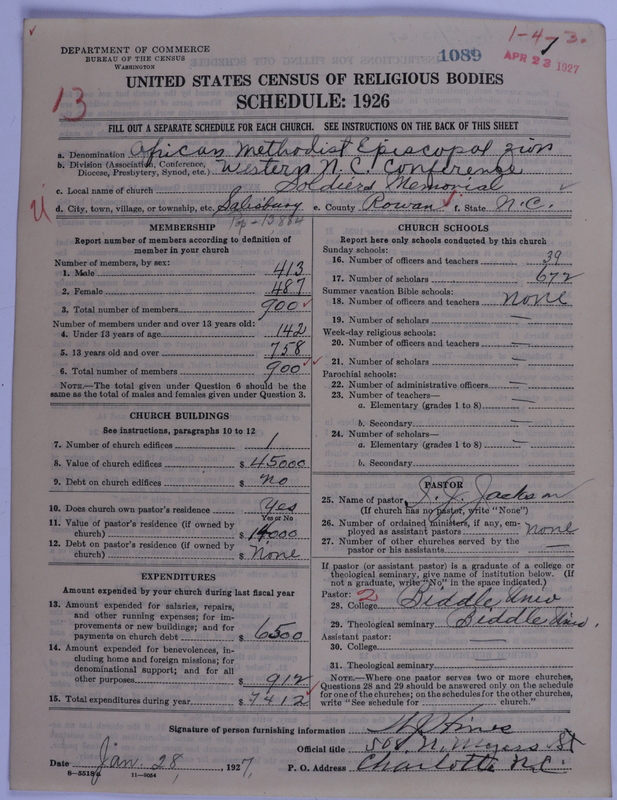 1-4-7 3.
DEPARTMENT OF COMMERCE
BUREAU OF THE CENSUS
WASHINGTON
1089
APR 23 1927
UNITED STATES CENSUS OF RELIGIOUS BODIES
13
SCHEDULE: 1926
FILL OUT A SEPARATE SCHEDULE FOR EACH CHURCH. SEE INSTRUCTIONS ON THE BACK OF THIS SHEET
a. Denomination African Methodist Episcopal Zion
b. Division (Association, Conference, Diocese, Presbytery, Synod, etc.) Western N.C. Conference
c. Local name of church Soldiers Memorial
d. City, town, village, or township, etc. Salisbury e. County Rowan f. State N.C.
Pop-13884
MEMBERSHIP
Report number of members according to definition of
member in your church
Number of members, by sex:
1. Male 413
2. Female 487
3. Total number of members 900
Number of members under and over 13 years old:
4. Under 13 years of age 142
5. 13 years old and over 758
6. Total number of members 900
NOTE.—The total given under Question 6 should be the
same as the total of males and females given under Question 3.
CHURCH BUILDINGS
See instructions, paragraphs 10 to 12
7. Number of church edifices 1
8. Value of church edifices $ 45000
9. Debt on church edifices $ No
10. Does church own pastor's residence? Yes
Yes or No
11. Value of pastor's residence (if owned by
church) $
12. Debt on pastor's residence (if owned by
church) $ None
EXPENDITURES
Amount expended by your church during last fiscal year
13. Amount expended for salaries, repairs,
and other running expenses; for im-
provements or new buildings; and for
payments on church debt $ 6500
14. Amount expended for benevolences, in-
cluding home and foreign missions; for
denominational support; and for all
other purposes $ 912
15. Total expenditures during year $ 7412
CHURCH SCHOOLS
Report here only schools conducted by this church
Sunday schools:
16. Number of officers and teachers 39
17. Number of scholars 672
Summer vacation Bible schools:
18. Number of officers and teachers none
19. Number of scholars —
Week-day religious schools:
20. Number of officers and teachers —
21. Number of scholars —
Parochial schools:
22. Number of administrative officers —
23. Number of teachers—
a. Elementary (grades 1 to 8) —
b. Secondary —
24. Number of scholars—
a. Elementary (grades 1 to 8) —
b. Secondary —
PASTOR
25. Name of pastor Jackson
(If church has no pastor, write "None")
26. Number of ordained ministers, if any, em-
ployed as assistant pastors none
27. Number of other churches served by the
pastor or his assistants —
If pastor (or assistant pastor) is a graduate of a college or
theological seminary, give name of institution below. (If
not a graduate, write "No" in the space indicated.)
Pastor: 2
28. College Biddle Univ
29. Theological seminary Biddle Univ.
Assistant pastor:
30. College —
31. Theological seminary
NOTE.—Where one pastor serves two or more churches,
Questions 28 and 29 should be answered only on the schedule
for one of the churches; on the schedules for the other churches,
write "See schedule for church."
Signature of person furnishing information Hines
Official title 508 N. Myers St
Date Jan. 28, 1927, P. O. Address Charlotte N.C.
11—9054